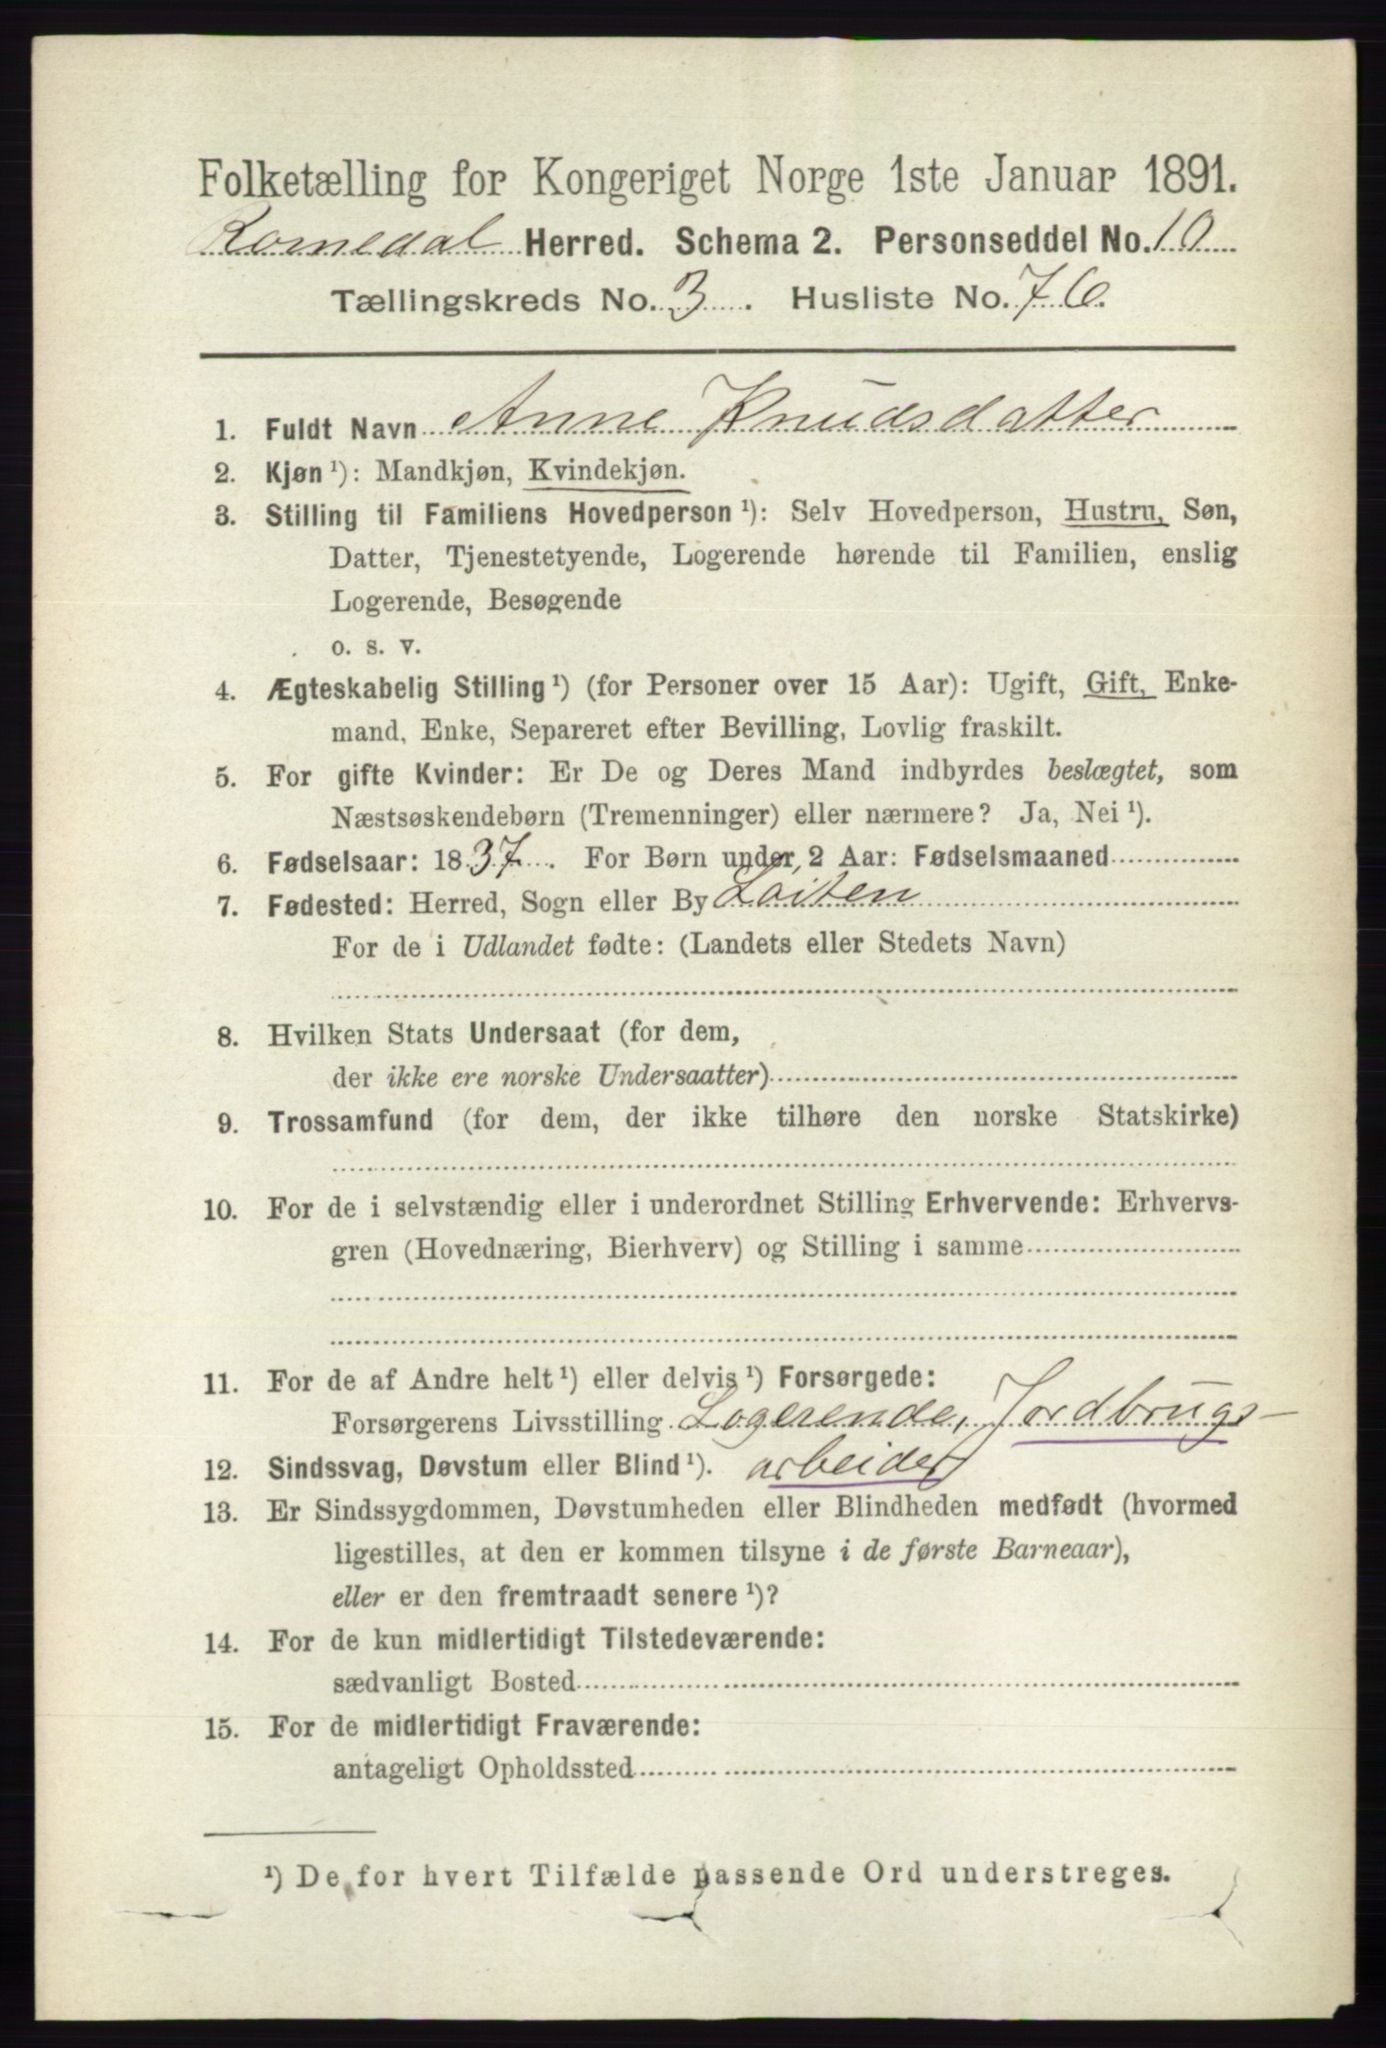 Folketælling for Kongeriget Norge 1ste Januar 1891.
Romedal Herred. Schema 2. Personseddel No. 10
Tællingskreds No. 3. Husliste No. 76.
1. Fuldt Navn Anne Knudsdatter
2. Kjøn ¹): Mandkjøn, Kvindekjøn.
3. Stilling til Familiens Hovedperson ¹): Selv Hovedperson, Hustru, Søn,
Datter, Tjenestetyende, Logerende hørende til Familien, enslig
Logerende, Besøgende
o. s. v.
4. Ægteskabelig Stilling ¹) (for Personer over 15 Aar): Ugift, Gift, Enke-
mand, Enke, Separeret efter Bevilling, Lovlig fraskilt.
5. For gifte Kvinder: Er De og Deres Mand indbyrdes beslægtet, som
Næstsøskendebørn (Tremenninger) eller nærmere? Ja, Nei ¹).
6. Fødselsaar: 1837. For Børn under 2 Aar: Fødselsmaaned
7. Fødested: Herred, Sogn eller By Loiten
For de i Udlandet fødte: (Landets eller Stedets Navn)
8. Hvilken Stats Undersaat (for dem,
der ikke ere norske Undersaatter)
9. Trossamfund (for dem, der ikke tilhøre den norske Statskirke)
10. For de i selvstændig eller i underordnet Stilling Erhvervende: Erhvervs-
gren (Hovednæring, Bierhverv) og Stilling i samme
11. For de af Andre helt ¹) eller delvis ¹) Forsørgede:
Forsørgerens Livsstilling Logerende, Jordbrugs-
12. Sindssvag, Døvstum eller Blind ¹). arbeider
13. Er Sindssygdommen, Døvstumheden eller Blindheden medfødt (hvormed
ligestilles, at den er kommen tilsyne i de første Barneaar),
eller er den fremtraadt senere ¹)?
14. For de kun midlertidigt Tilstedeværende:
sædvanligt Bosted
15. For de midlertidigt Fraværende:
antageligt Opholdssted
¹) De for hvert Tilfælde passende Ord understreges.